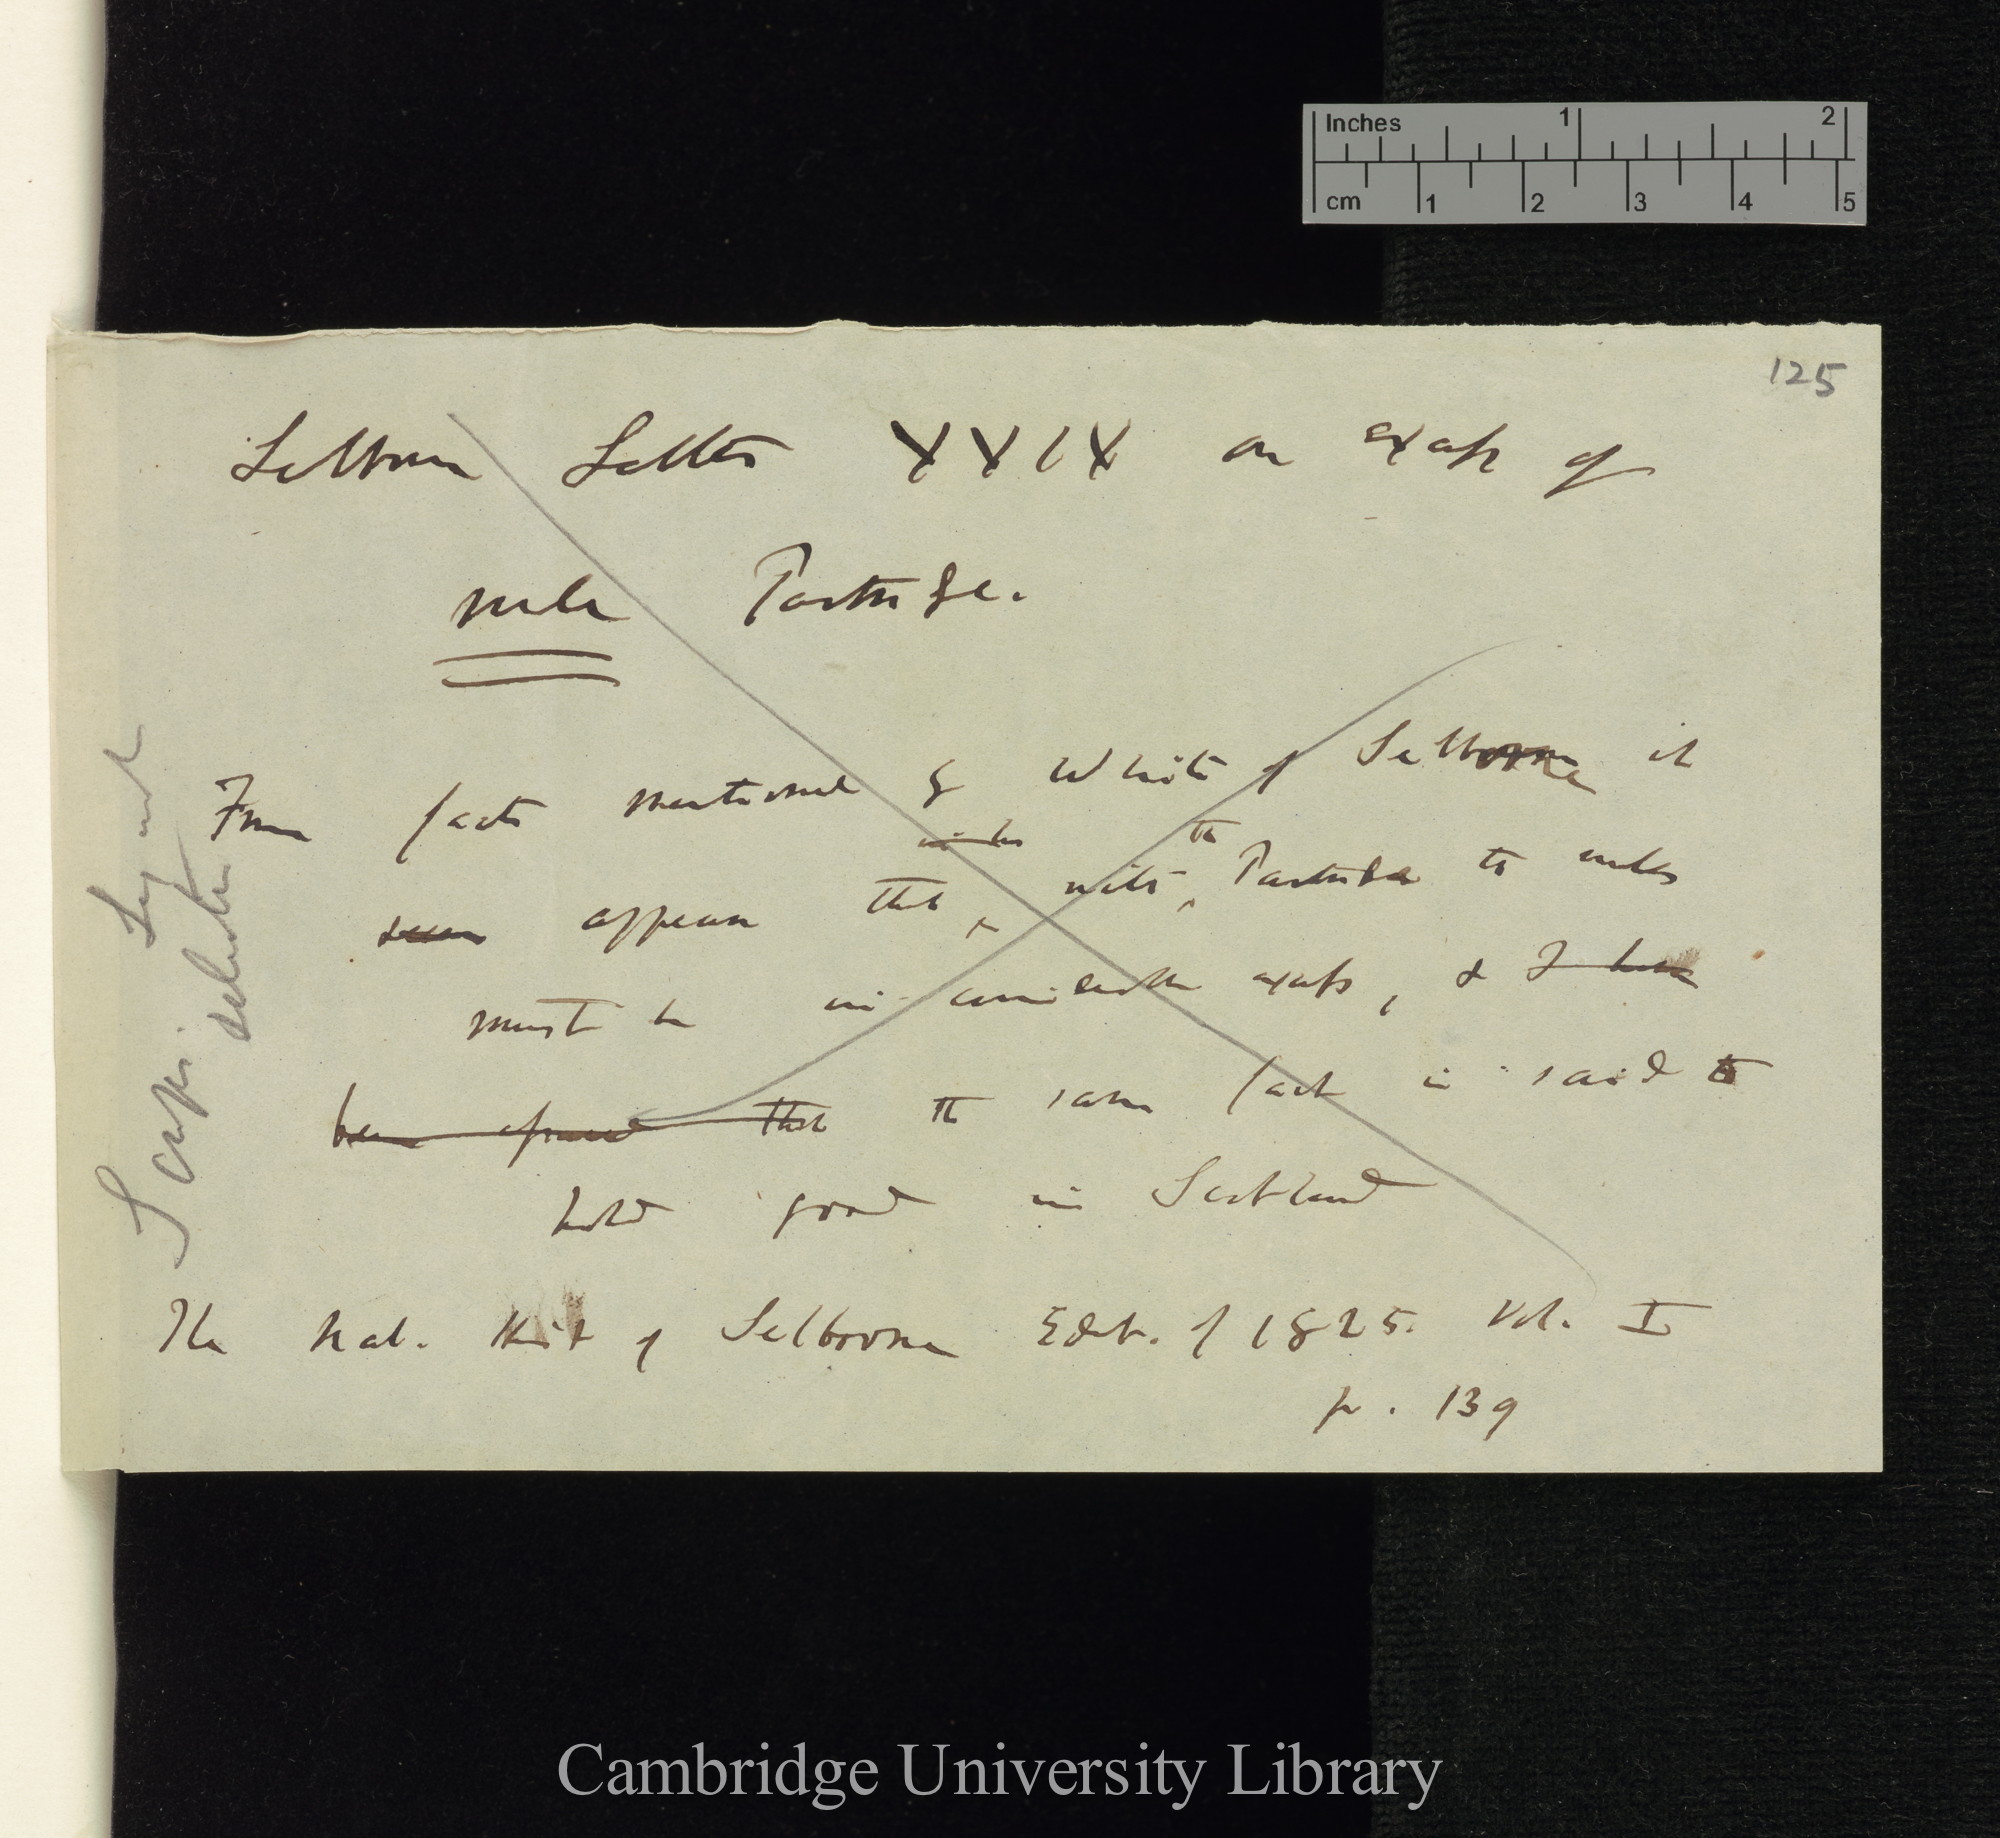 Inches 1 2
cm 1 2 3 4 5
125
Selborne Letter XXIX on excess of
male Partridge.
From facts mentioned by White of Selborne it
seem appears that with the Partridge to males
must be in considerable excess, & I have
been assured that the same fact is said to
hold good in Scotland
The Nat. Hist of Selborne Edit. of 1825. Vol. I
p. 139
Cambridge University Library